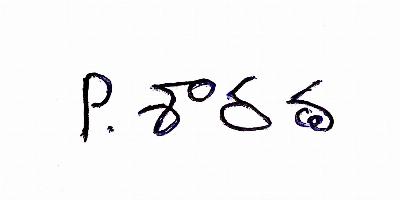 P. శారద